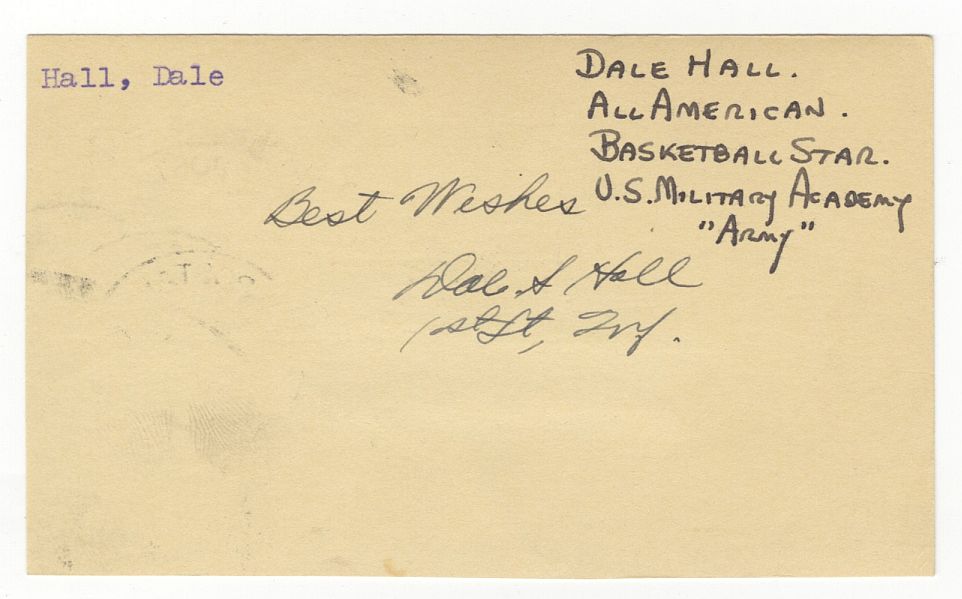 Hall, Dale
DALE HALL.
ALL AMERICAN.
BASKETBALL STAR.
U.S. MILITARY ACADEMY
"ARMY"
Best Wishes
Dale S Hall
1st Lt, Inf.